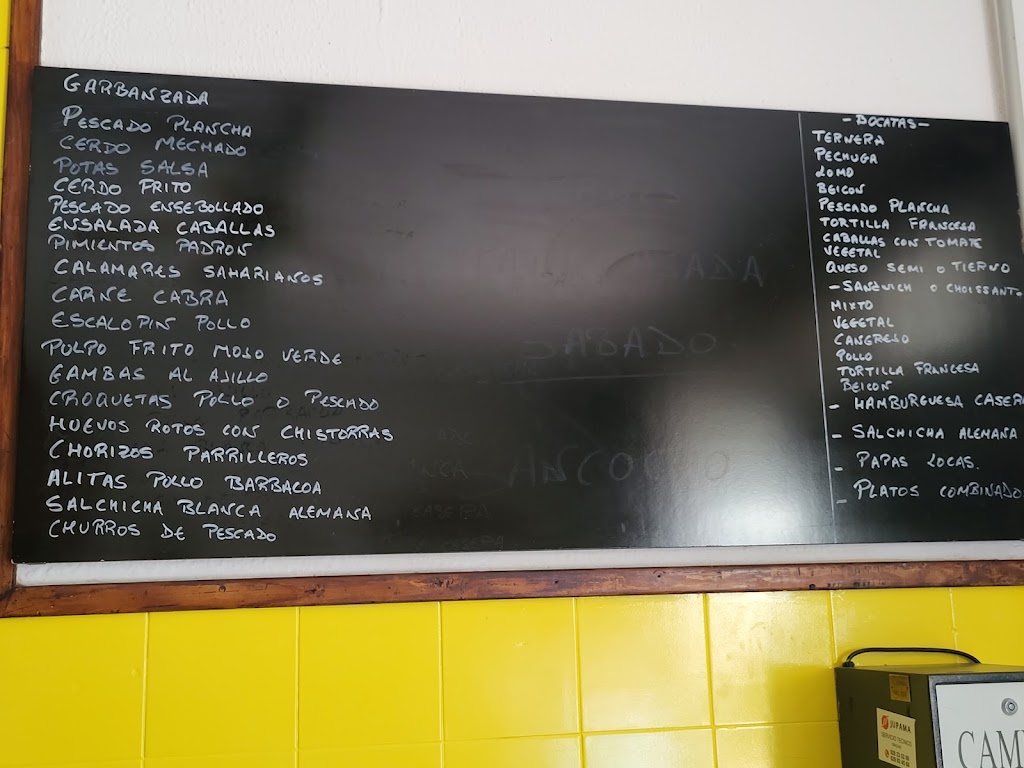 GARBANZADA
PESCADO PLANCHA
CERDO MECHADO
POTAS SALSA
CERDO FRITO
PESCADO ENSEBOLLADO
ENSALADA CABALLAS
PIMIENTOS PADRON
CALAMARES SAHARIANOS
CARNE CABRA
ESCALOPIN POLLO
PULPO FRITO MOJO VERDE
GAMBAS AL AJILLO
CROQUETAS POLLO O PESCADO
HUEVOS ROTOS CON CHISTORRAS
CHORIZOS PARRILLEROS
ALITAS POLLO BARBACOA
SALCHICHA BLANCA ALEMANA
CHURROS DE PESCADO
-BOCATAS-
TERNERA
PECHUGA
LOMO
BEICON
PESCADO PLANCHA
TORTILLA FRANCESA
CABALLAS CON TOMATE
VEGETAL
QUESO SEMI O TIERNO
-SANDWICH O CROISSANT
MIXTO
VEGETAL
CANGREJO
POLLO
TORTILLA FRANCESA
BEICON
- HAMBURGUESA CASERA
- SALCHICHA ALEMANA
- PAPAS LOCAS.
- PLATOS COMBINADO
SABADO
JUPAMA
SERVICIO TECNICO
CAM